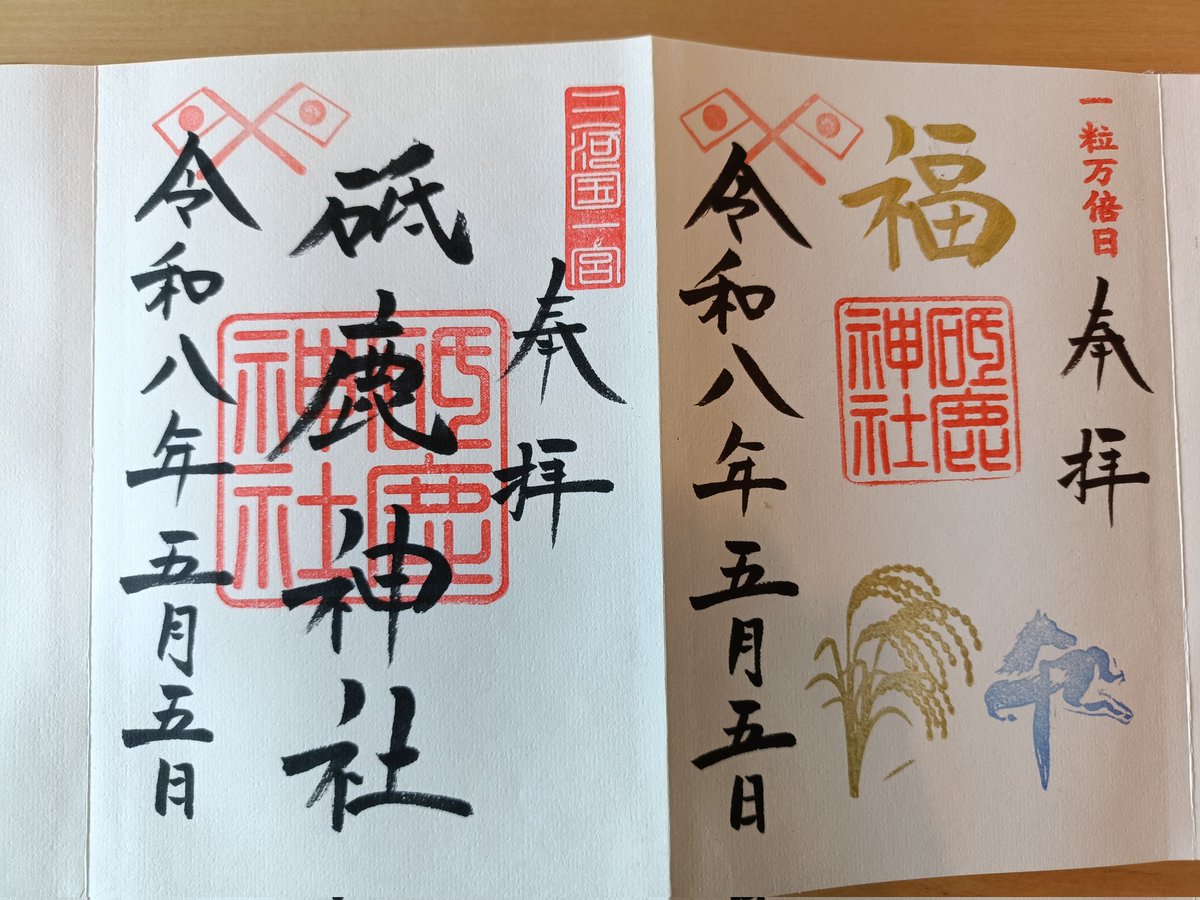 一粒万倍日
奉拝
福
砥鹿神社
令和八年五月五日
三河国一宮
奉拝
砥鹿神社
砥鹿神社
令和八年五月五日